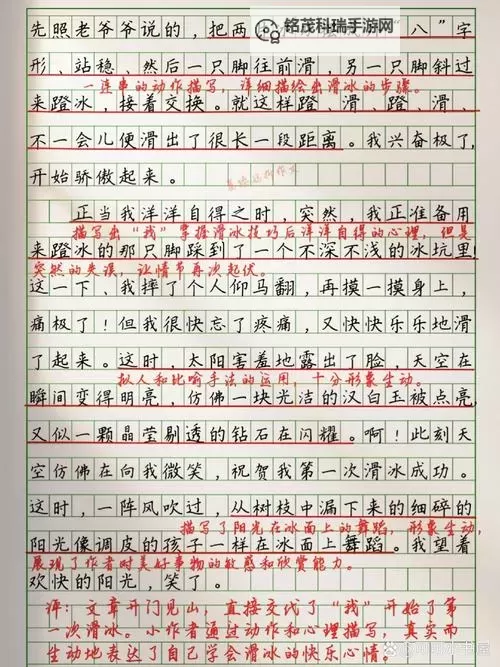 铭茂科瑞手游网
先照老爷爷说的，把两
八”字
形、站稳、然后一只脚往前滑，另一只脚斜过
一连串的动作描写，详细描绘出滑冰的步骤。
来蹬冰，接着交换。就这样蹬、滑、蹬、滑、
不一会儿便滑出了很长一段距离。我兴奋极了，
开始骄傲起来。
正当我洋洋自得之时，突然，我正准备用
描写出“我”掌握滑冰技巧后洋洋自得的心理，但是
来蹬冰的那只脚踩到了一个不深不浅的冰坑里，
突然的失误，让情节再次起伏。
这一下、我摔了个人仰马翻，再摸一摸身上，
痛极了！但我很快忘了疼痛，又快快乐乐地滑
了起来。这时，太阳害羞地露出了脸，天空在
拟人和比喻手法的运用，十分形象生动。
瞬间变得明亮，仿佛一块光洁的汉白玉被点亮，
又似一颗晶莹剔透的钻石在闪耀。啊！此刻天
空仿佛在向我微笑，祝贺我第一次滑冰成功。
这时，一阵风吹过，从树枝中漏下来的细碎的
描写了阳光在冰面上的舞蹈，形象生动，
阳光像调皮的孩子一样在冰面上舞蹈。我望着
展现了作者对美好事物的敏感和欣赏能力。
欢快的阳光，笑了。
评：文章开门见山，直接交代了“我”开始了第
一次滑冰。小作者通过动作和心理描写，真实而
生动地表达了自己学会滑冰的快乐心情。